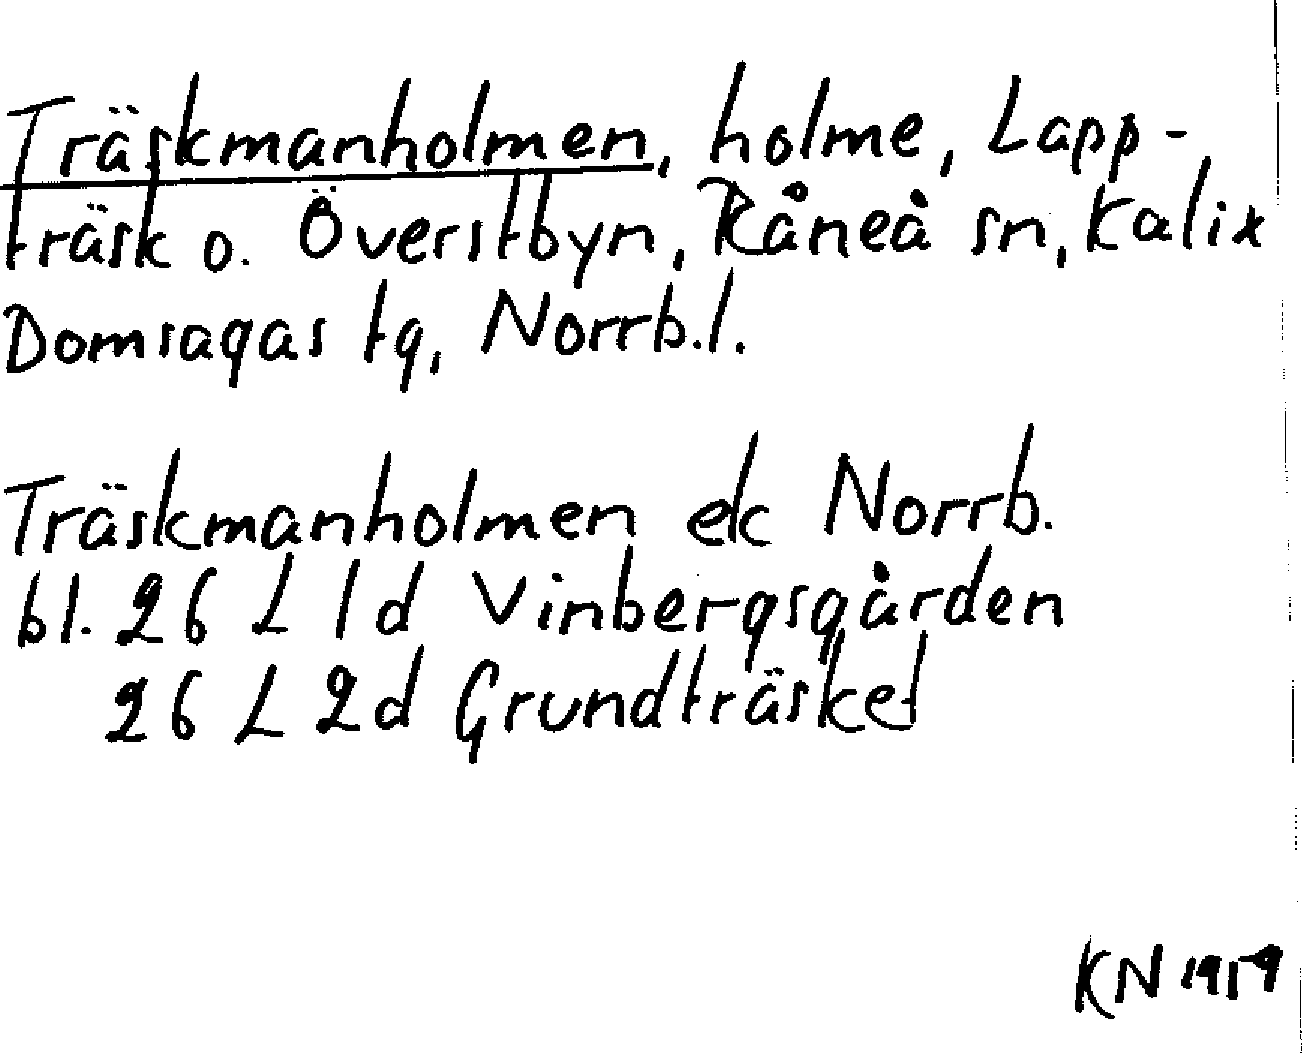 Träskmanholmen, holme, Lapp-
träsk o. Överstbyn, Råneå sn, Kalix
Domsagas tg, Norrb.l.
Träskmanholmen ek Norrb.
bl. 26 L 1d Vinbergsgården
26 L 2d Grundträsket
KN 1959